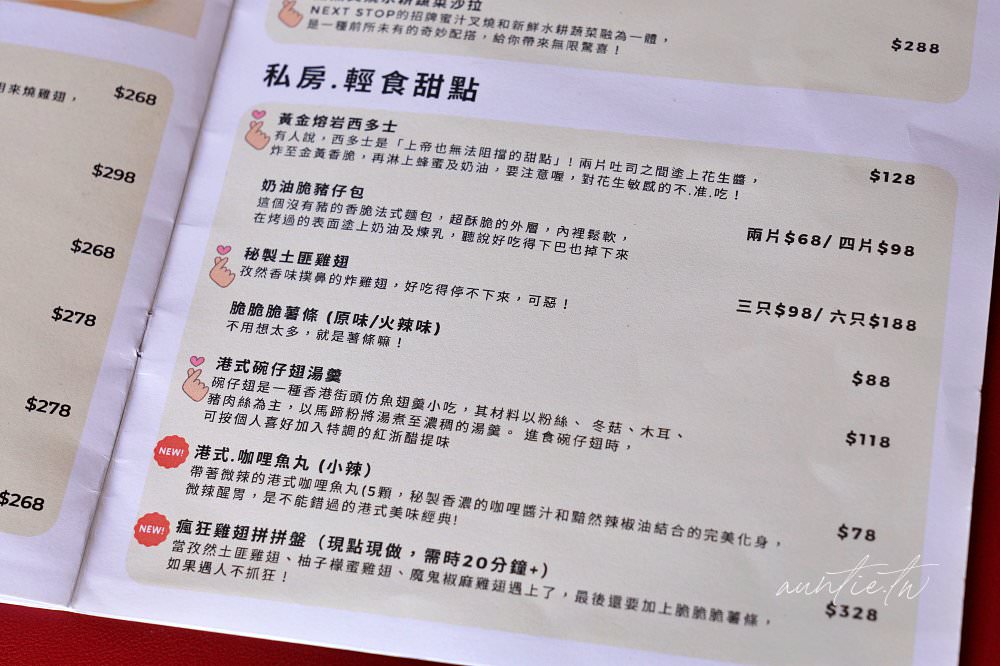 用來燒雞翅，
$268
$298
$268
$278
$278
$268
NEXT STOP的招牌蜜汁叉燒和新鮮水耕蔬菜融為一體，
是一種前所未有的奇妙配搭，給你帶來無限驚喜！
$288
私房.輕食甜點
黃金熔岩西多士
有人說，西多士是「上帝也無法阻擋的甜點」! 兩片吐司之間塗上花生醬，
炸至金黃香脆，再淋上蜂蜜及奶油，要注意喔，對花生敏感的不.准.吃！
$128
奶油脆豬仔包
這個沒有豬的香脆法式麵包，超酥脆的外層，內裡鬆軟，
在烤過的表面塗上奶油及煉乳，聽說好吃得下巴也掉下來
兩片$68/ 四片$98
秘製土匪雞翅
孜然香味撲鼻的炸雞翅，好吃得停不下來，可惡！
三只$98/ 六只$188
脆脆脆薯條 (原味/火辣味)
不用想太多，就是薯條嘛！
$88
港式碗仔翅湯羹
碗仔翅是一種香港街頭仿魚翅羹小吃，其材料以粉絲、 冬菇、木耳、
豬肉絲為主，以馬蹄粉將湯煮至濃稠的湯羹。 進食碗仔翅時，
可按個人喜好加入特調的紅浙醋提味
$118
NEW!
港式.咖哩魚丸 (小辣)
帶著微辣的港式咖哩魚丸(5顆，秘製香濃的咖哩醬汁和黯然辣椒油結合的完美化身，
微辣醒胃，是不能錯過的港式美味經典!
$78
NEW!
瘋狂雞翅拼拼盤（現點現做，需時20分鐘+）
當孜然土匪雞翅、柚子檬蜜雞翅、魔鬼椒麻雞翅遇上了，最後還要加上脆脆脆薯條，
如果遇人不抓狂！
$328
auntie.tw